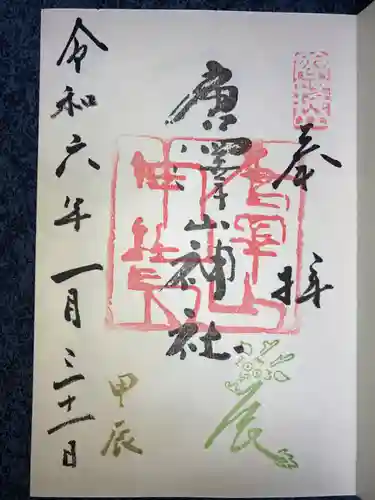 奉拝
唐澤山神社
辰
甲辰
令和六年一月三十一日